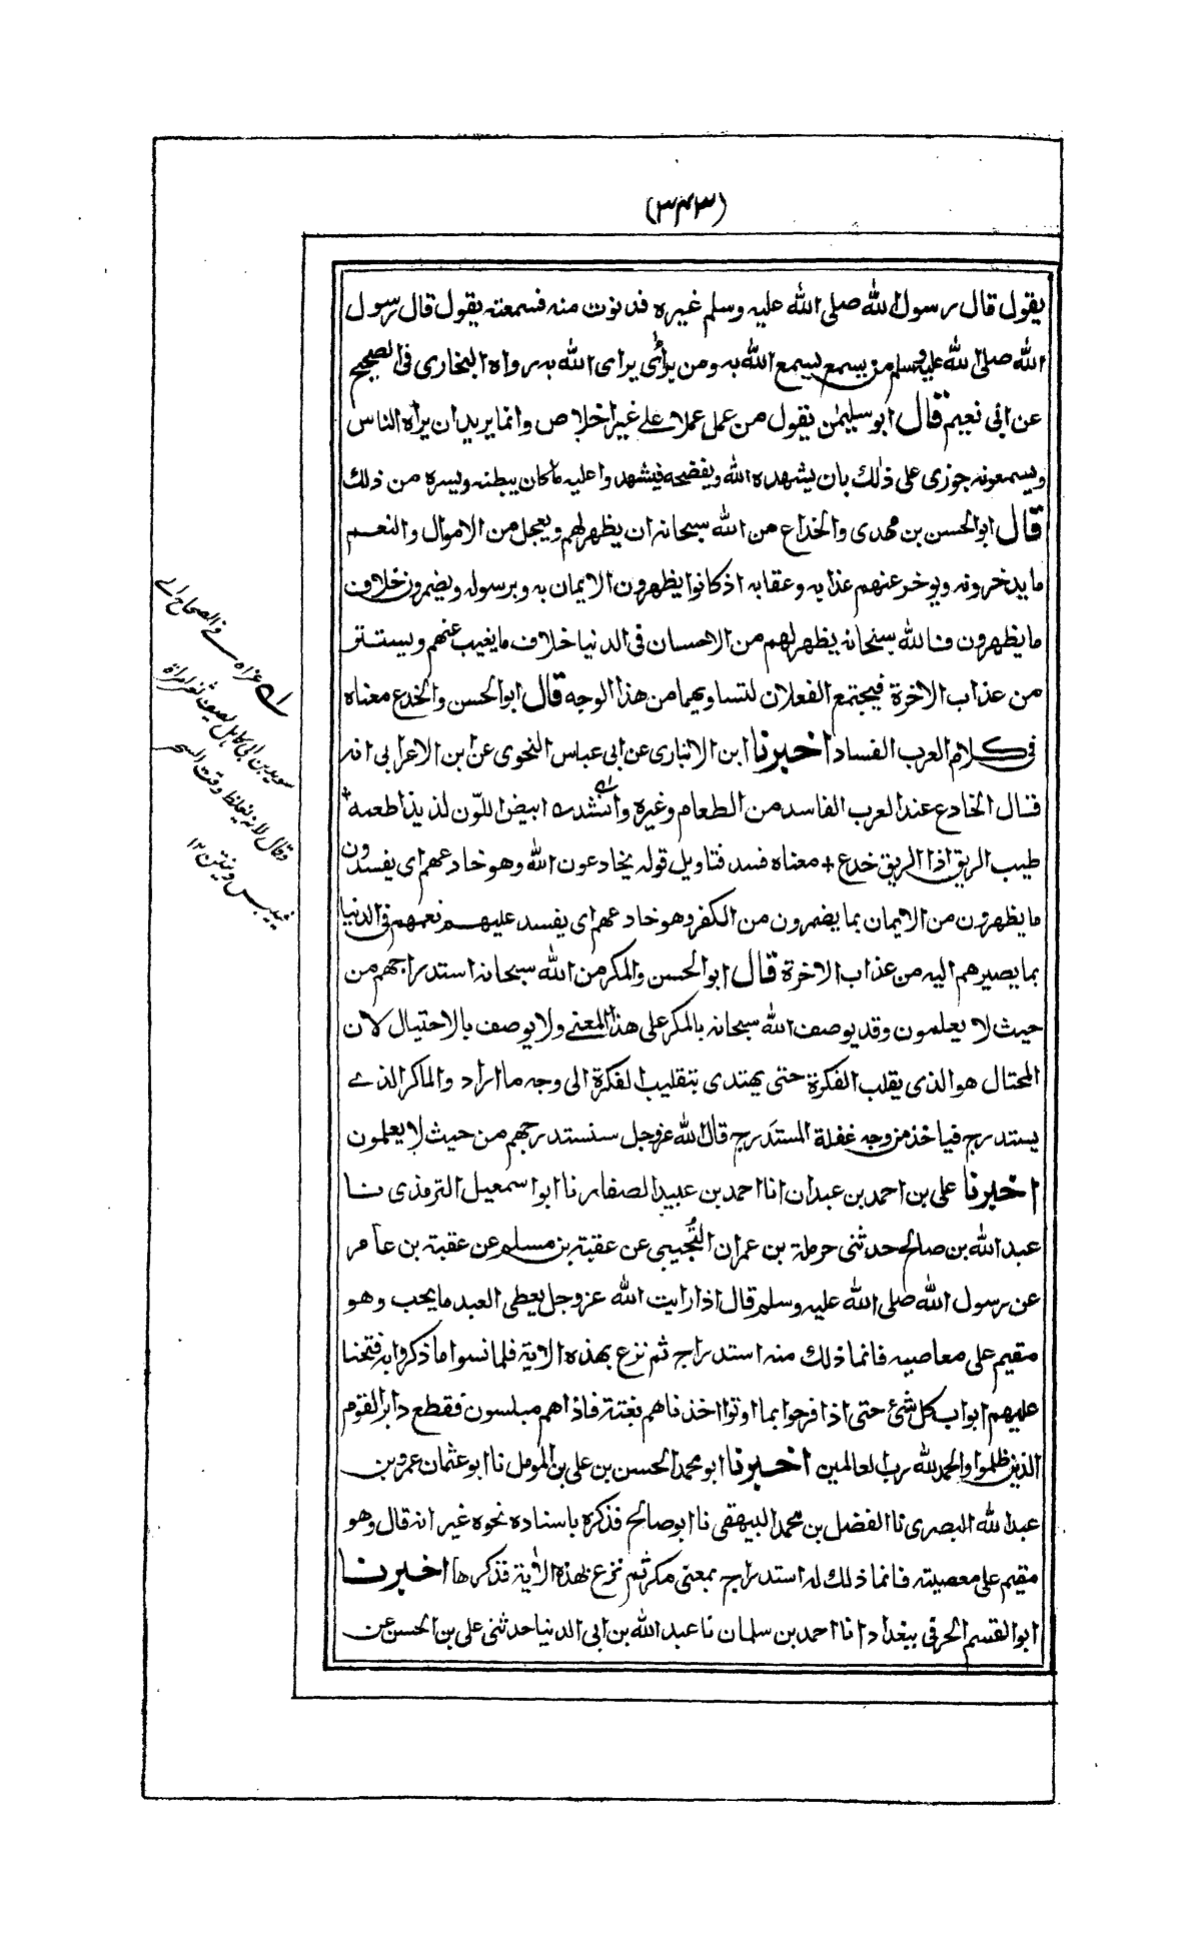 (٣٤٣)
يقول قال رسول الله صلى الله عليه وسلم غيره فدنوت منه فسمعته يقول قال رسول
الله صلى الله عليه وسلم من يسمع يسمع الله به ومن يرائى يراى الله به رواه البخارى فى الصحيح
عن ابى نعيم قال ابو سليمٰن يقول من عمل عملا على غير اخلاص وانما يريد ان يراه الناس
ويسمعونه جوزى على ذٰلك بان يشهده الله ويفضحه فيشهدوا عليه ما كان يبطنه ويسره من ذلك
قال ابو الحسن بن مهدى والخداع من الله سبحانه ان يظهر لهم ويعجل من الاموال والنعم
ما يدخرونه ويوخر عنهم عذابه وعقابه اذ كانوا يظهرون الايمان به وبرسوله ويضمرون خلاف
ما يظهرون فالله سبحانه يظهر لهم من الاحسان فى الدنيا خلاف ما يغيب عنهم ويستتر
من عذاب الاخرة فيجتمع الفعلان لتساويهما من هذا الوجه قال ابو الحسن والخدع معناه
فى كلام العرب الفساد اخبرنا ابن الانبارى عن ابى عباس النحوى عن ابن الاعرابى انه
قال الخادع عند العرب الفاسد من الطعام وغيره وانشد له ابيض اللون لذيذا طعمه +
طيب الريق اذا الريق خدع + معناه فسد فتاويل قوله يخادعون الله وهو خادعهم اى يفسدون
ما يظهرون من الايمان بما يضمرون من الكفر وهو خادعهم اى يفسد عليهم نعمهم فى الدنيا
بما يصيرهم اليه من عذاب الاخرة قال ابو الحسن والمكر من الله سبحانه استدراجهم من
حيث لا يعلمون وقد يوصف الله سبحانه بالمكر على هذا المعنى ولا يوصف بالاحتيال لان
المحتال هو الذى يقلب الفكرة حتى يهتدى بتقليب الفكرة الى وجه ما اراد والماكر الذے
يستدرج فياخذ من وجه غفلة المستَدرج قال الله عزوجل سنستدرجهم من حيث لا يعلمون
اخبرنا على بن احمد بن عبدان انا احمد بن عبيد الصفار نا ابو اسمعيل الترمذى نا
عبد الله بن صالح حدثنى حرملة بن عمران التُجيبى عن عقبة بن مسلم عن عقبة بن عامر
عن رسول الله صلى الله عليه وسلم قال اذا رايت الله عزوجل يعطى العبد ما يحب وهو
مقيم على معاصيه فانما ذلك منه استدراج ثم نزع بهذه الاية فلما نسوا ما ذكروا به فتحنا
عليهم ابواب كل شئ حتى اذا فرحوا بما اوتوا اخذناهم بغتة فاذا هم مبلسون فقطع دابر القوم
الذين ظلموا والحمد لله رب العالمين اخبرنا ابو محمد الحسن بن على بن المومل نا ابو عثمان عمرو بن
عبد الله البصرى نا الفضل بن محمد البيهقى نا ابو صالح فذكره باسناده نحوه غير انه قال وهو
مقيم على معصيته فانما ذلك له استدراج بمعنى مكر ثم نزع بهذه الاٰية فذكرها اخبرنا
ابو القسم الحرقى ببغداد انا احمد بن سلمان نا عبد الله بن ابى الدنيا حدثنى على بن الحسن عن
لے عزاه فى الصحاح الے
سويد بن ابى كاهل يصف ثغر امراة
وقال لانه يغلظ وقت السحر
فييبس وينتن ١٢